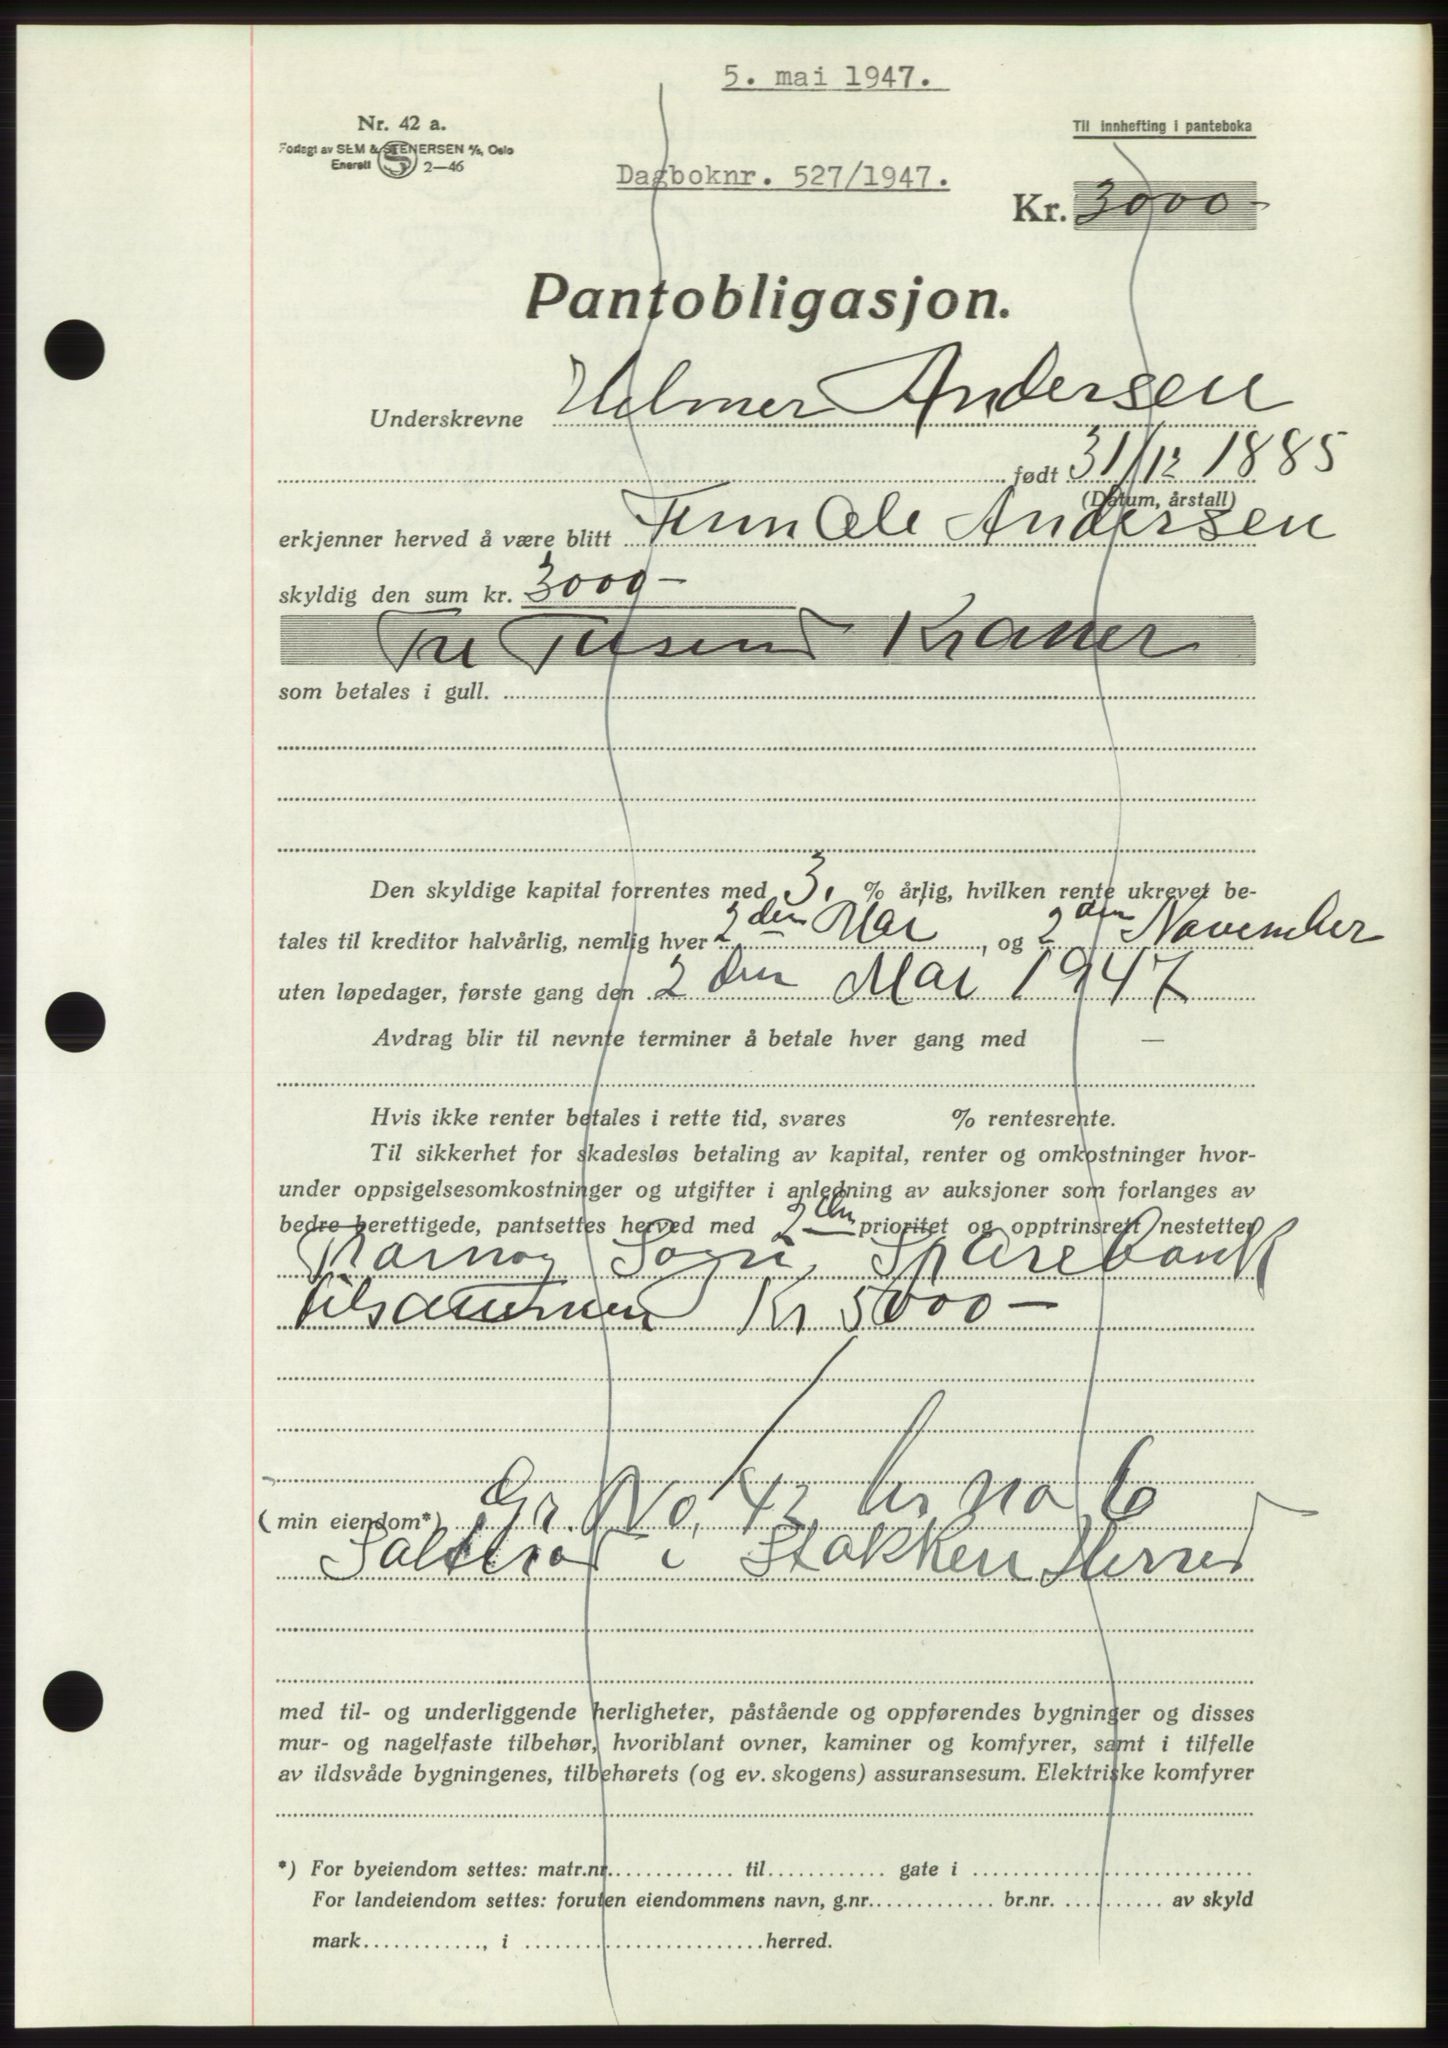 5. mai 1947.
Nr. 42 a.
Forlagt av SEM & STENERSEN A/S, Oslo
Enerett S 2—46
Til innhefting i panteboka
Dagboknr. 527/1947.
Kr. 3000-
Pantobligasjon.
Underskrevne Helmer Andersen
født 31/12 1885
(Datum, årstall)
erkjenner herved å være blitt Finn Ole Andersen
skyldig den sum kr. 3000-
Tre Tusend Kroner
som betales i gull.
Den skyldige kapital forrentes med 3. % årlig, hvilken rente ukrevet be-
tales til kreditor halvårlig, nemlig hver 2 den Mai, og 2 den November
uten løpedager, første gang den 2 den Mai 1947
Avdrag blir til nevnte terminer å betale hver gang med —
Hvis ikke renter betales i rette tid, svares % rentesrente.
Til sikkerhet for skadesløs betaling av kapital, renter og omkostninger hvor-
under oppsigelsesomkostninger og utgifter i anledning av auksjoner som forlanges av
bedre berettigede, pantsettes herved med 2 den prioritet og opptrinsrett nestetter
Sogn Sparebank
tilsammen Kr 5000-
(min eiendom*) Gr. No. 42 br no 6
Saltrød i Stokken Herred
med til- og underliggende herligheter, påstående og oppførendes bygninger og disses
mur- og nagelfaste tilbehør, hvoriblant ovner, kaminer og komfyrer, samt i tilfelle
av ildsvåde bygningenes, tilbehørets (og ev. skogens) assuransesum. Elektriske komfyrer
*) For byeiendom settes: matr.nr. til gate i
For landeiendom settes: foruten eiendommens navn, g.nr. br.nr. av skyld
mark , i herred.